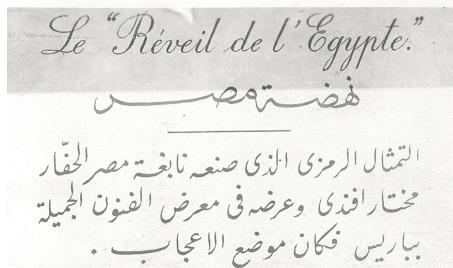 Le "Réveil de l'Egypte."
نهضة مصر
التمثال الرمزى الذى صنعه نابغة مصر الحفّار
مختار افندى وعرضه فى معرض الفنون الجميلة
بباريس فكان موضع الاعجاب .